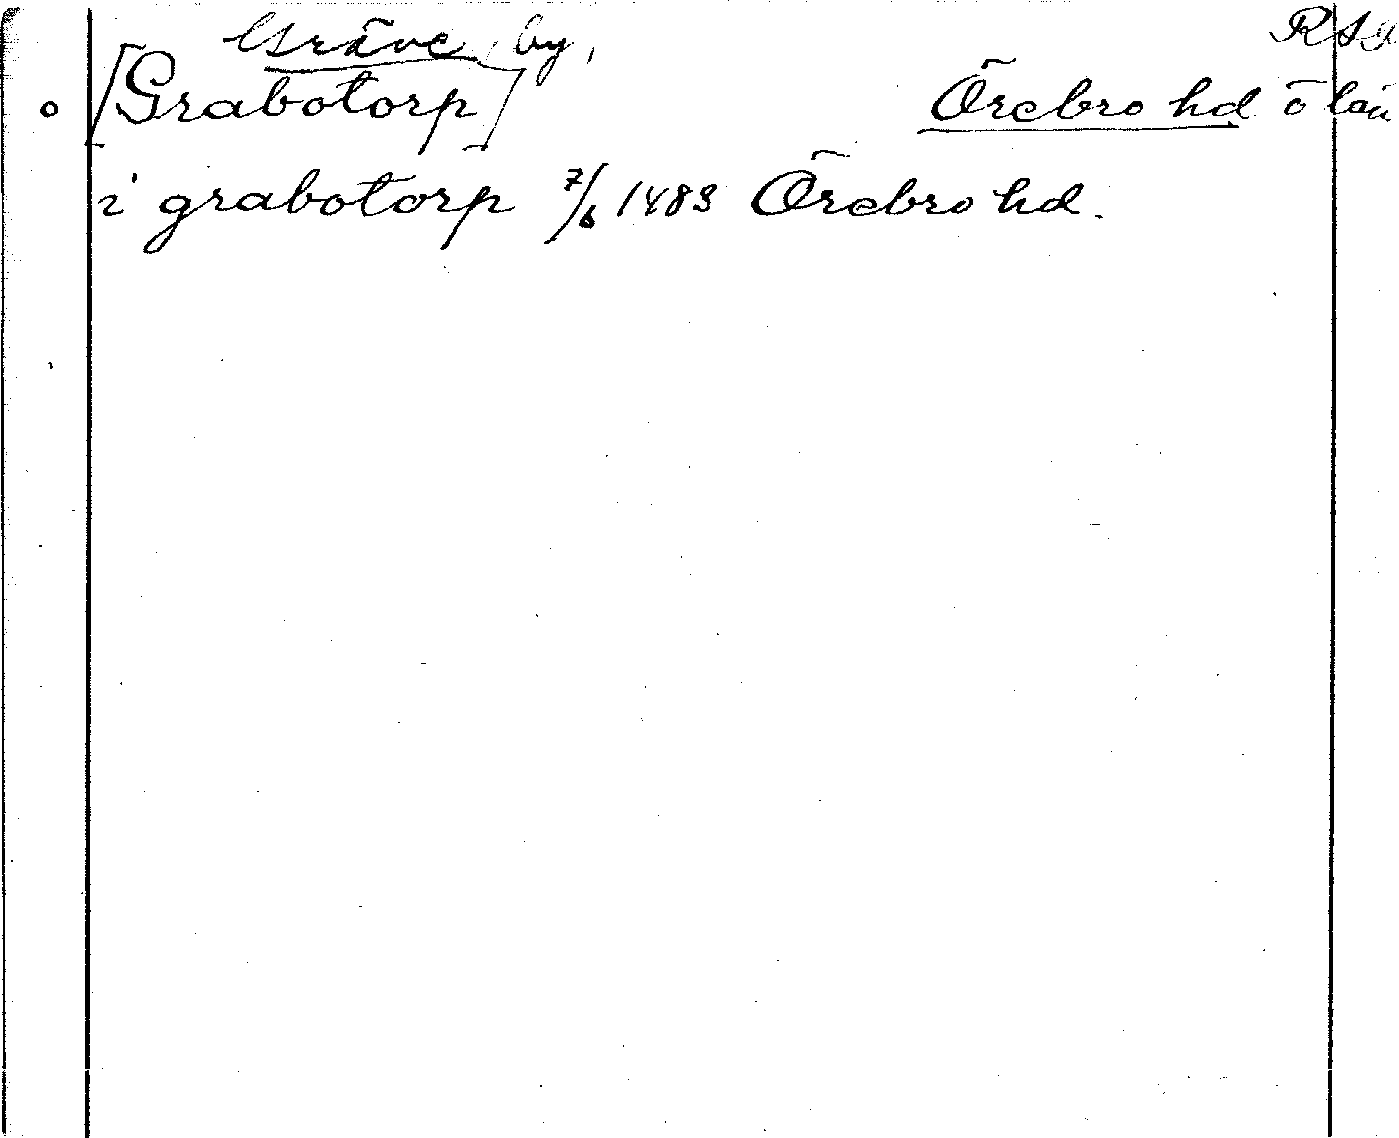 Gräve, by,
o [Grabotorp] Örebro hd ö län
i grabotorp 7/6 1483 Örebro hd.